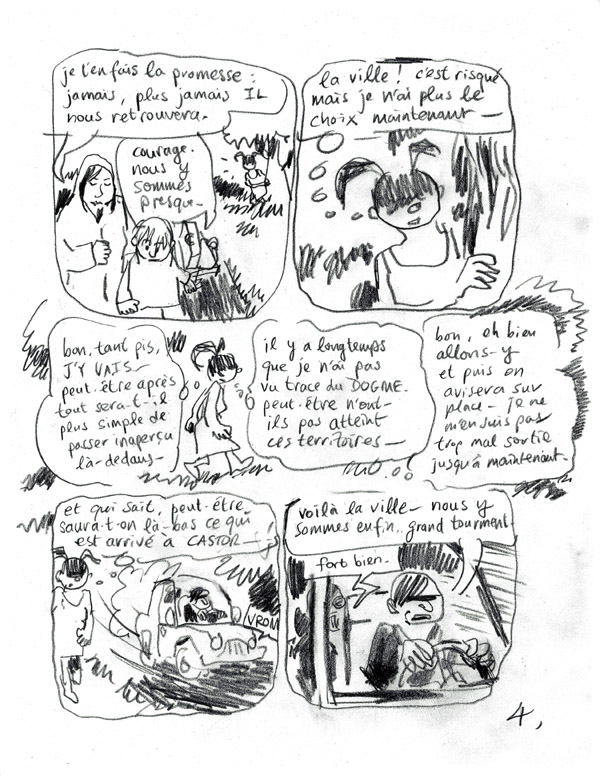 je t'en fais la promesse :
jamais, plus jamais IL
nous retrouvera.
courage.
nous y
sommes
presque_
la ville ! c'est risqué
mais je n'ai plus le
choix maintenant _
bon, tant pis,
J'Y VAIS_
peut-être après
tout sera-t-il
plus simple de
passer inaperçu
là-dedans_
il y a longtemps
que je n'ai pas
vu trace du DOGME.
peut-être n'ont-
ils pas atteint
ces territoires_
bon, eh bien
allons-y
et puis on
avisera sur
place_ je ne
m'en suis pas
trop mal sortie
jusqu'à maintenant.
et qui sait, peut-être
saura-t-on là-bas ce qui
est arrivé à CASTOR_
VROM
voilà la ville_ nous y
sommes enfin.. grand tourment
fort bien.
4,